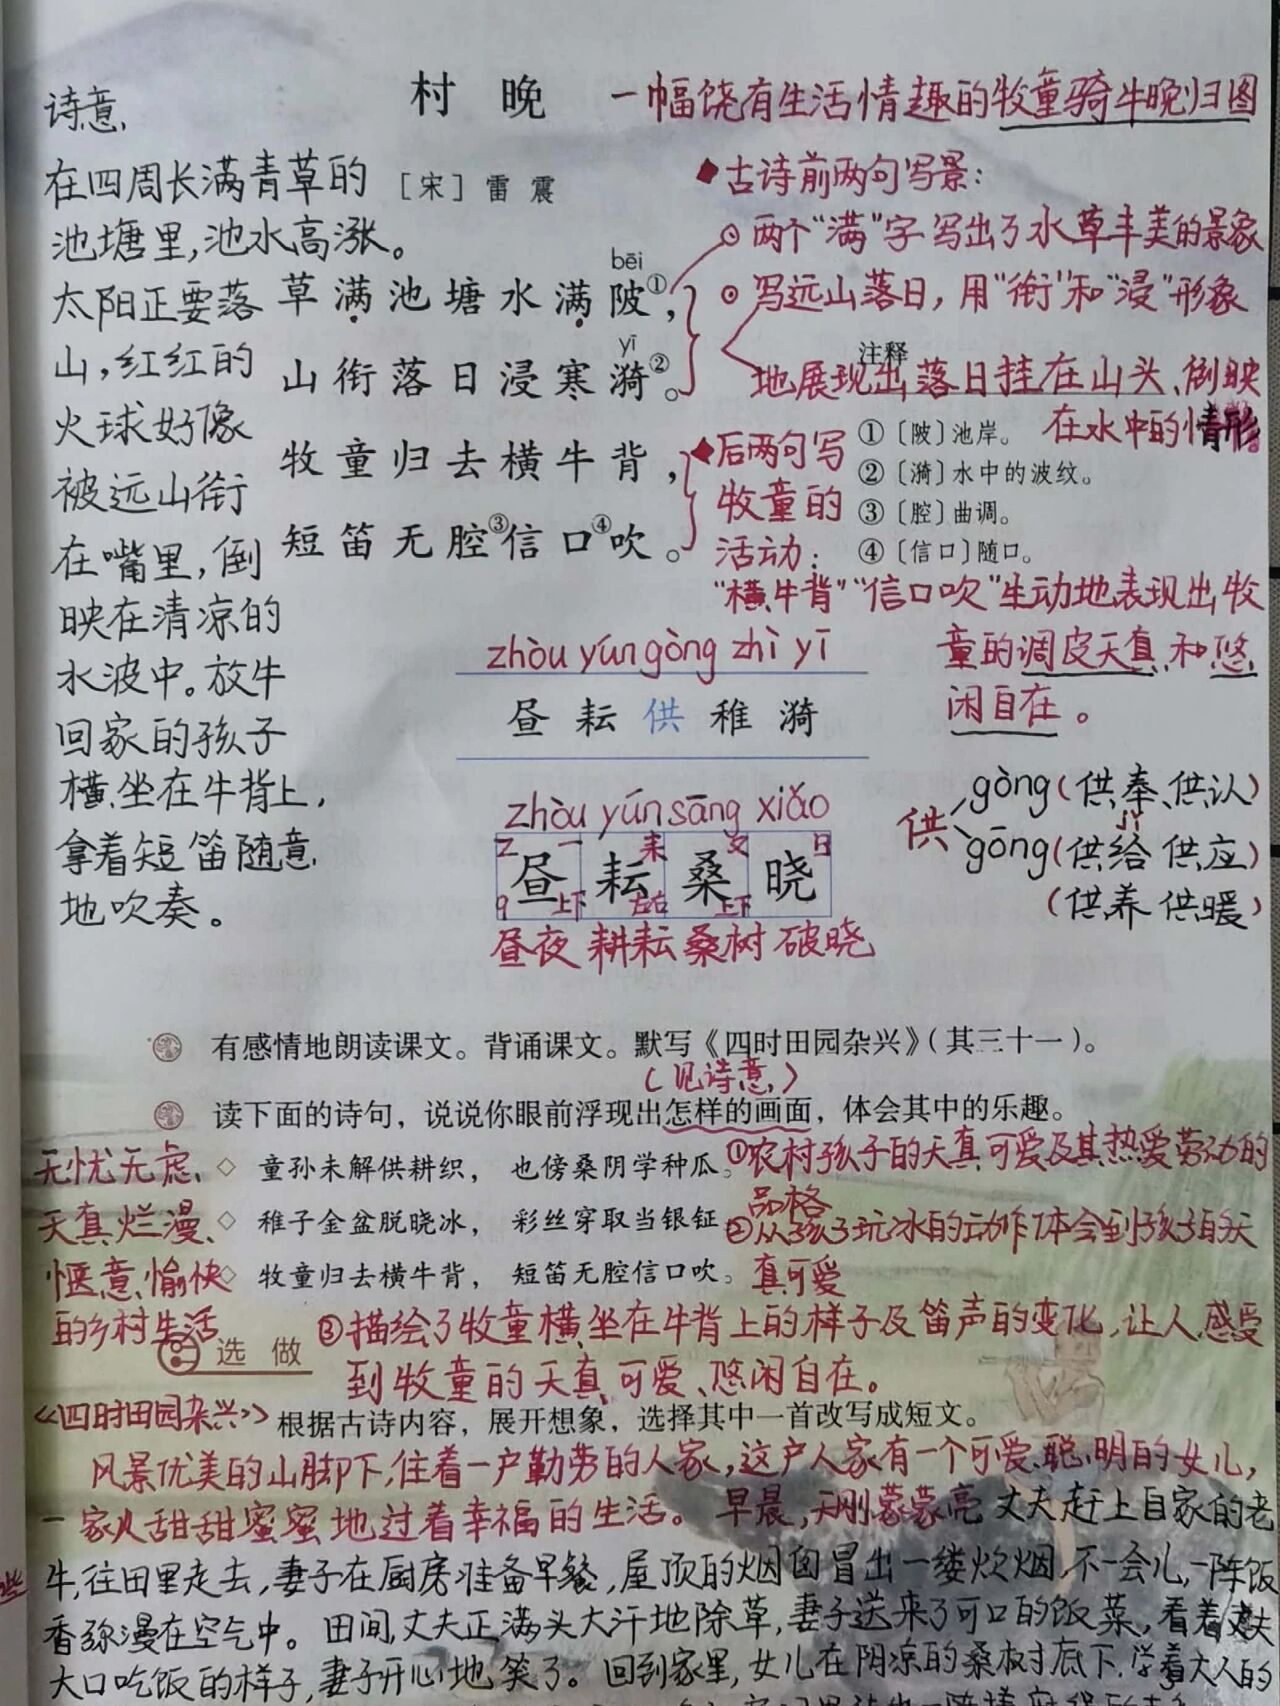 村晚
一幅饶有生活情趣的牧童骑牛晚归图
[宋]雷震
诗意
在四周长满青草的
池塘里,池水高涨。
太阳正要落
山,红红的
火球好像
被远山衔
在嘴里,倒
映在清凉的
水波中。放牛
回家的孩子
横坐在牛背上,
拿着短笛随意
地吹奏。
bēi
草满池塘水满陂①,
yī
山衔落日浸寒漪②。
牧童归去横牛背,
短笛无腔③信口④吹。
◆古诗前两句写景:
⊙两个“满”字写出了水草丰美的景象
⊙写远山落日,用“衔”和“浸”形象
地展现出落日挂在山头、倒映
在水中的情形
注释
①〔陂〕池岸。
②〔漪〕水中的波纹。
③〔腔〕曲调。
④〔信口〕随口。
◆后两句写
牧童的
活动:
“横牛背”“信口吹”生动地表现出牧
童的调皮天真和悠
闲自在。
zhòu yún gòng zhì yī
昼 耘 供 稚 漪
zhòu yún sāng xiǎo
乙 一 耒 又 日
昼 耘 桑 晓
9 上下 左右 上下
昼夜 耕耘 桑树 破晓
供
gòng(供奉、供认)
gōng(供给 供应)
jǐ
(供养 供暖)
有感情地朗读课文。背诵课文。默写《四时田园杂兴》(其三十一)。
(见诗意)
读下面的诗句,说说你眼前浮现出怎样的画面,体会其中的乐趣。
◇ 童孙未解供耕织, 也傍桑阴学种瓜。
◇ 稚子金盆脱晓冰, 彩丝穿取当银钲。
◇ 牧童归去横牛背, 短笛无腔信口吹。
无忧无虑、
天真烂漫、
惬意、愉快
的乡村生活
①农村孩子的天真可爱及其热爱劳动的
品格
②从孩子玩冰的动作体会到孩子的天
真可爱
③描绘了牧童横坐在牛背上的样子及笛声的变化,让人感受
到牧童的天真可爱、悠闲自在。
选做
《四时田园杂兴》
根据古诗内容,展开想象,选择其中一首改写成短文。
风景优美的山脚下,住着一户勤劳的人家,这户人家有一个可爱、聪明的女儿,
一家人甜甜蜜蜜地过着幸福的生活。早晨,天刚蒙蒙亮 丈夫赶上自家的老
牛,往田里走去,妻子在厨房准备早餐,屋顶的烟囱冒出一缕炊烟,不一会儿,一阵饭
香弥漫在空气中。田间,丈夫正满头大汗地除草,妻子送来了可口的饭菜,看着丈夫
大口吃饭的样子,妻子开心地笑了。回到家里,女儿在阴凉的桑树底下,学着大人的